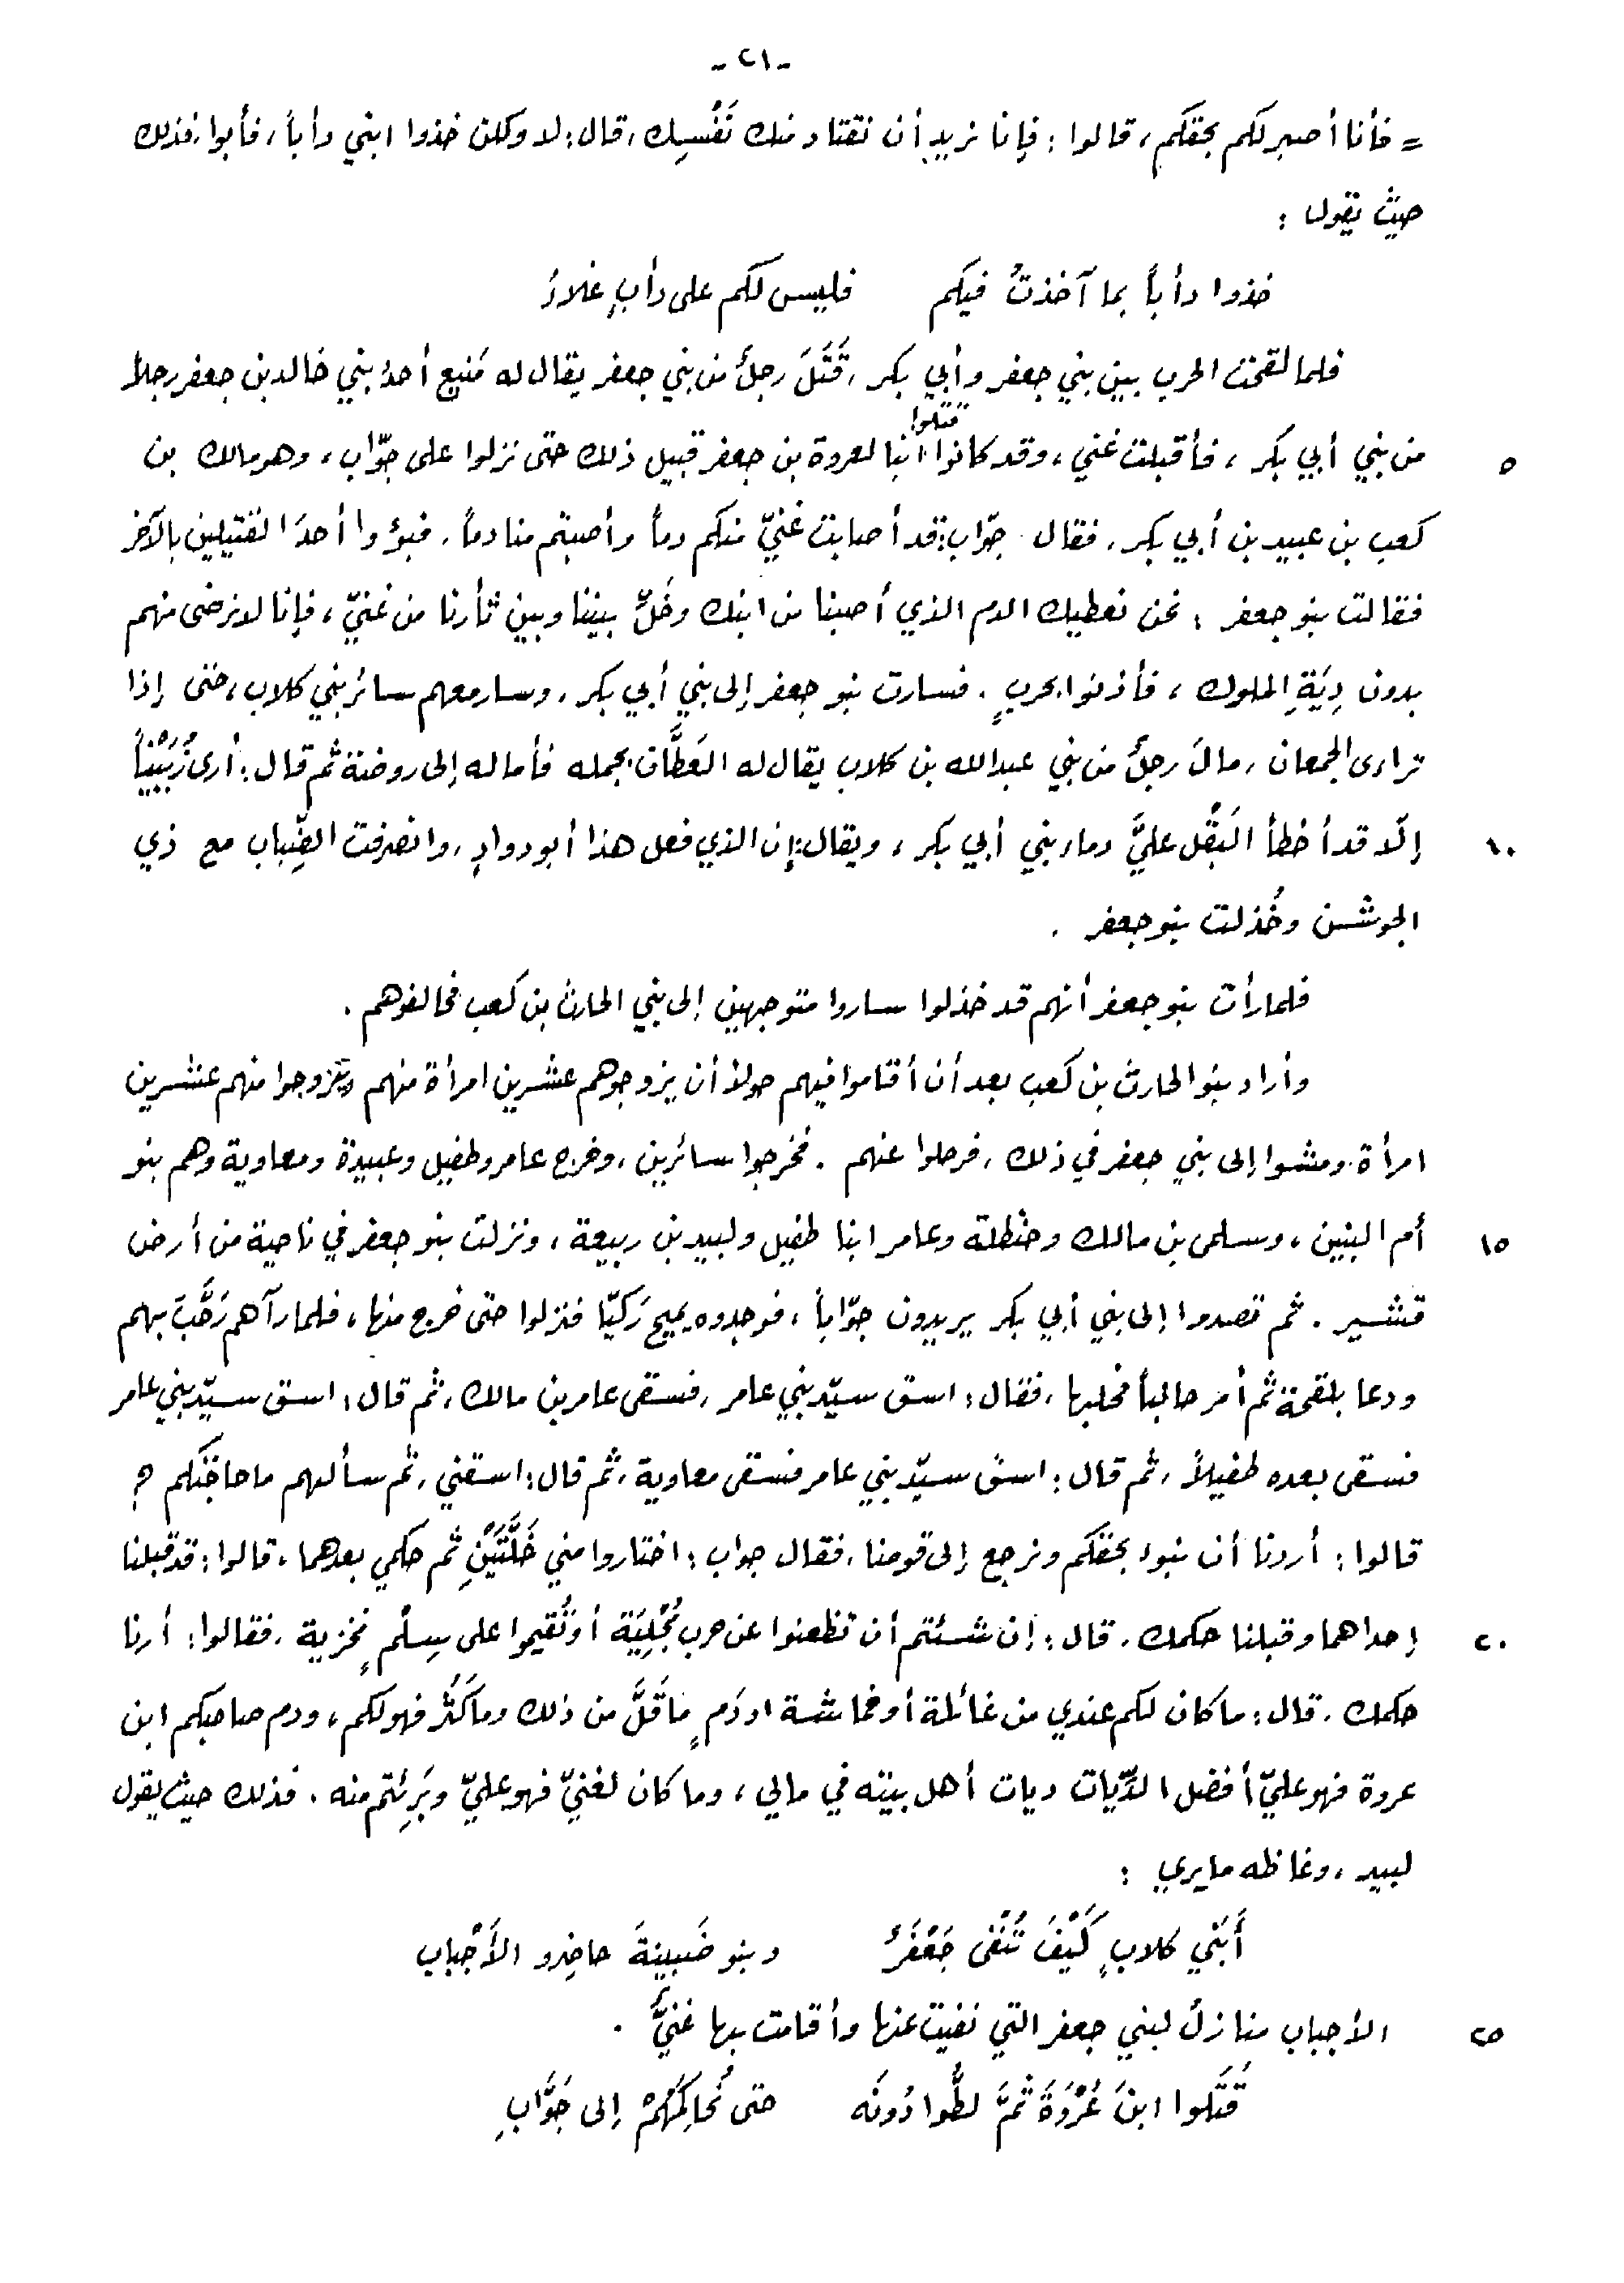 - ٢١ -
= فأنا أصبر لكم بحقكم، قالوا: فإنا نريد أن نقتاد منك نَفْسِك، قال: لا ولكن خذوا ابني دأباً، فأبوا، فذلك
حيث يقول :
خذوا دأباً بما آخذتُ فيكم     فليس لكم على دأبٍ غلاءُ
فلما لقحت الحرب بين بني جعفر وأبي بكر، قَتَلَ رجلٌ من بني جعفر يقال له مَنيع أحدُ بني خالد بن جعفر رجلاً
٥ من بني أبي بكر، فأقبلت غني، وقد كانوا قتلوا ابنا لعروة بن جعفر قبيل ذلك حتى نزلوا على جوّاب، وهو مالك بن
كعب بن عبيد بن أبي بكر، فقال جوّاب: قد أصابت غنيّ منكم دماً وأصبتم منا دماً، فبؤوا أحدَ القتيلين بالآخر
فقالت بنو جعفر : نحن نعطيك الدم الذي أصبنا من ابنك وخَلِّ بيننا وبين ثأرنا من غنيّ، فإنا لا نرضى منهم
بدون دِيَةِ الملوك، فأذنوا بحربٍ. فسارت بنو جعفر إلى بني أبي بكر، وسار معهم سائر بني كلاب، حتى إذا
تراءى الجمعان، مالَ رجلٌ من بني عبدالله بن كلاب يقال له العَطَّان بجمله فأماله إلى روضة ثم قال: أرى
١٠ إلّا قد أخطأ البَقْل عليَّ دماء بني أبي بكر، ويقال: إن الذي فعل هذا أبو دوادٍ، وانصرفت الضِّباب مع ذي
الجوشن وخُذلت بنو جعفر .
فلما رأت بنو جعفر أنهم قد خذلوا ساروا متوجهين إلى بني الحارث بن كعب فحالفوهم .
وأراد بنو الحارث بن كعب بعد أن أقاموا فيهم حولاً أن يزوجوهم عشرين امرأة منهم ويتزوجوا منهم عشرين
امرأة، ومشوا إلى بني جعفر في ذلك، فرحلوا عنهم . فخرجوا سائرين، وخرج عامر وطفيل وعبيدة ومعاوية وهم بنو
١٥ أم البنين، وسلمى بن مالك وحنظلة وعامر ابنا طفيل ولبيد بن ربيعة، ونزلت بنو جعفر في ناحية من أرض
قشير . ثم قصدوا إلى بني أبي بكر يريدون جوّاباً، فوجدوه يميح رَكيّا فنزلوا حتى خرج منها، فلما رآهم رَحَّبَ بهم
ودعا بلقحة ثم أمر حالباً فحلبها، فقال: اسق سيّد بني عامر، فسقى عامر بن مالك، ثم قال: اسق سيّد بني عامر
فسقى بعده طفيلاً، ثم قال: اسق سيّد بني عامر فسقى معاوية، ثم قال: اسقني، ثم سألهم ما حاجتكم ؟
قالوا : أردنا أن نبوء بحقكم ونرجع إلى قومنا، فقال جواب : اختاروا مني خَلَّتَيْنِ ثم حكمي بعدهما، قالوا: قد قبلنا
٢٠ إحداهما وقبلنا حكمك، قال: إن شئتم أن تظعنوا عن حرب مُجْلِيَة أو تُقيموا على سِلْمٍ مخزية، فقالوا: أرنا
حكمك، قال: ما كان لكم عندي من غائلة أو خماشة او دَمٍ مَا قَلَّ من ذلك وما كَثُر فهو لكم، ودم صاحبكم ابن
عروة فهو عليّ أفضل الدِّيات ديات أهل بيته في مالي، وما كان لغنيّ فهو عليّ وبَرِئتم منه . فذلك حيث يقول
لبيد، وغاظه ما يرى :
أَبَنِي كلابٍ كَيْفَ تُنْفى جَعْفَرٌ     وبنو ضَبينةَ حاضِرو الأَجْباب
٢٥ الأجباب منازلُ لبني جعفر التي نفيت عنها وأقامت بها غنيٌّ .
قَتَلوا ابنَ عُرْوَةَ ثُمَّ لطُّوا دُونَه     حتى نُحاكِمَهُمْ إلى جَوَّابِ